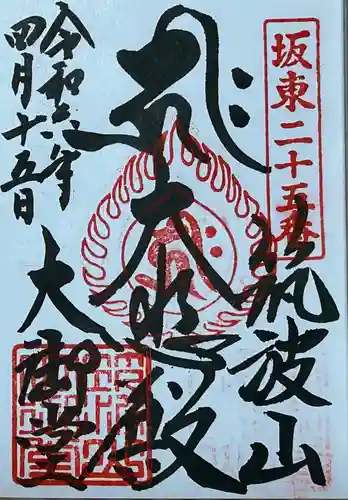 坂東二十五番
筑波山
大悲殿
大御堂
令和六年
四月十五日